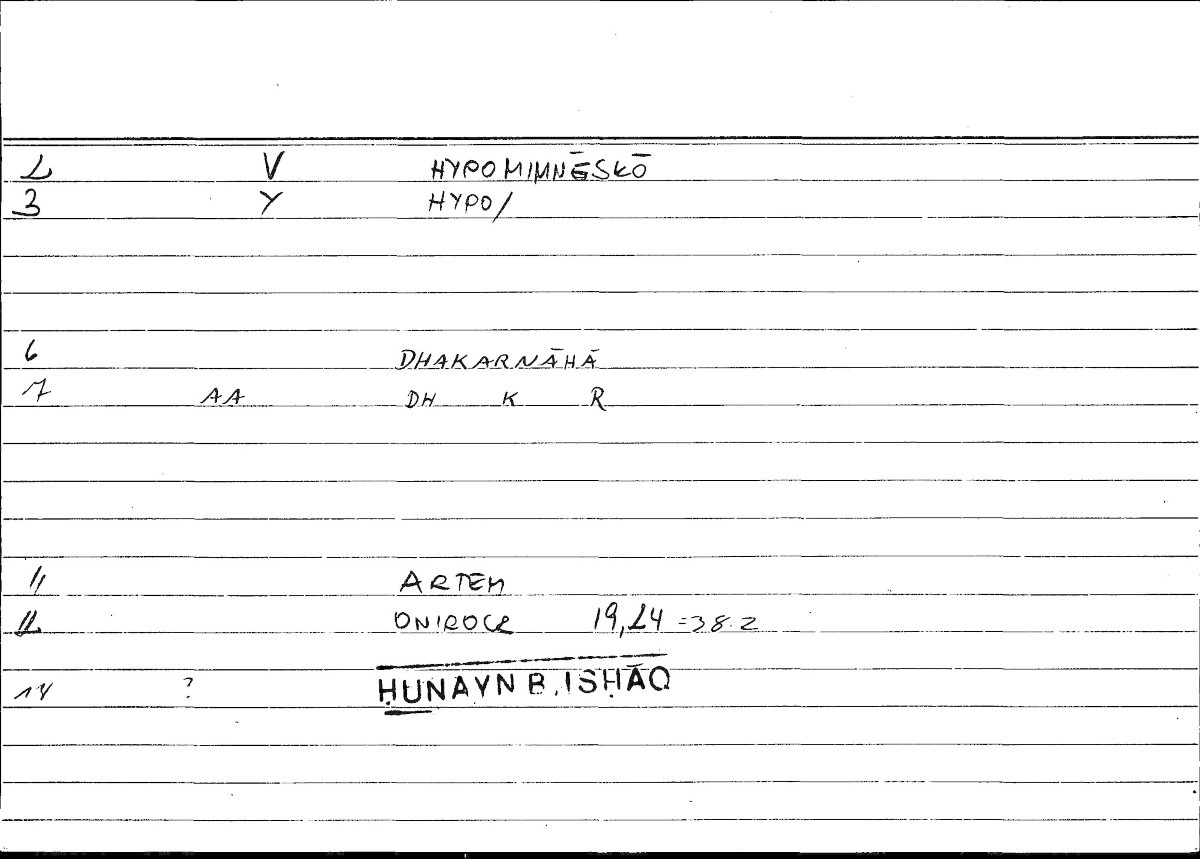 2 V HYPOMIMNĒSKŌ
3 Y HYPO/
6 DHAKARNĀHĀ
7 AA DH K R
11 ARTEM
12 ONIROCR 19,24 =38.2
14 ? ḤUNAYN B. ISḤĀQ